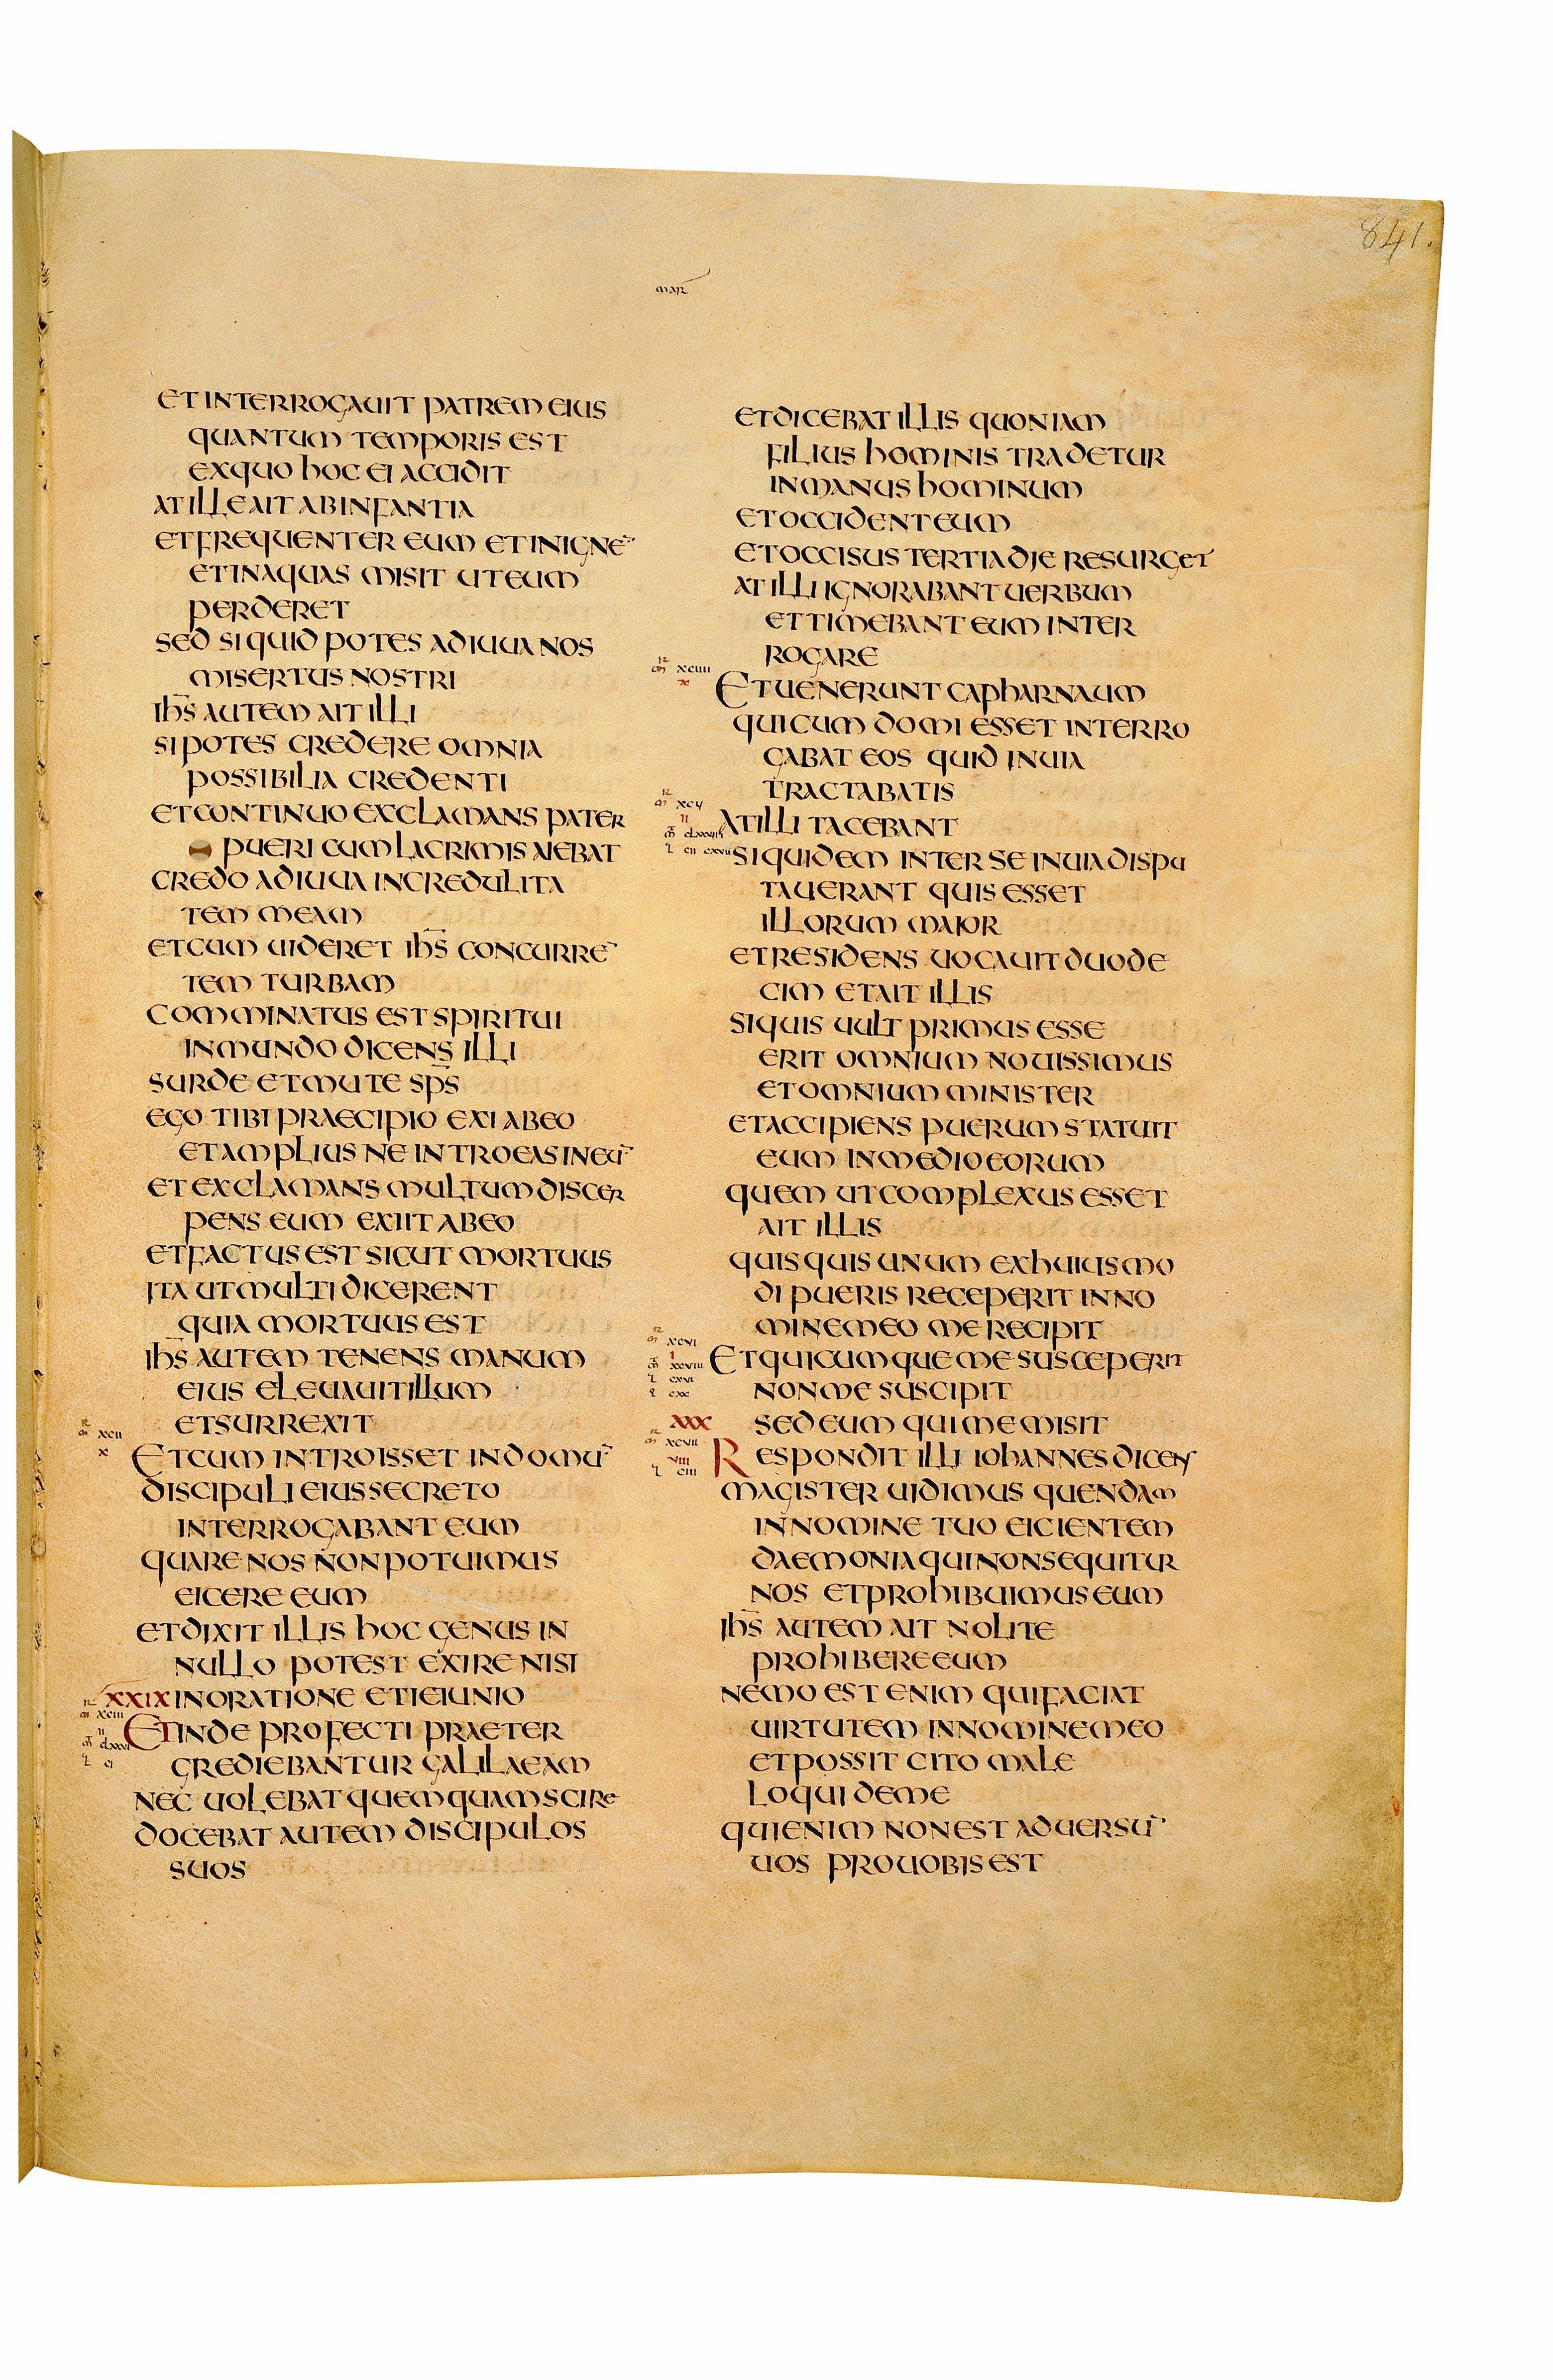 841.
mar
ET INTERROGAUIT PATREM EIUS
QUANTUM TEMPORIS EST
EX QUO HOC EI ACCIDIT
AT ILLE AIT AB INFANTIA
ET FREQUENTER EUM ET IN IGNE¯
ET IN AQUAS MISIT UT EUM
PERDERET
SED SI QUID POTES ADIUUA NOS
MISERTUS NOSTRI
IHS̄ AUTEM AIT ILLI
SI POTES CREDERE OMNIA
POSSIBILIA CREDENTI
ET CONTINUO EXCLAMANS PATER
PUERI CUM LACRIMIS AIEBAT
CREDO ADIUUA INCREDULITA
TEM MEAM
ET CUM UIDERET IHS̄ CONCURRE¯
TEM TURBAM
COMMINATUS EST SPIRITUI
INMUNDO DICENS ILLI
SURDE ET MUTE SPS̄
EGO TIBI PRAECIPIO EXI AB EO
ET AMPLIUS NE INTROEAS IN EU¯
ET EXCLAMANS MULTUM DISCER
PENS EUM EXIIT AB EO
ET FACTUS EST SICUT MORTUUS
ITA UT MULTI DICERENT
QUIA MORTUUS EST
IHS̄ AUTEM TENENS MANUM
EIUS ELEUAUIT ILLUM
ET SURREXIT
XCII
X
ET CUM INTROISSET IN DOMU¯
DISCIPULI EIUS SECRETO
INTERROGABANT EUM
QUARE NOS NON POTUIMUS
EICERE EUM
ET DIXIT ILLIS HOC GENUS IN
NULLO POTEST EXIRE NISI
XXIX IN ORATIONE ET IEIUNIO
XCIII
II
ET INDE PROFECTI PRAETER
L CI
GREDIEBANTUR GALILAEAM
NEC UOLEBAT QUEMQUAM SCIRE
DOCEBAT AUTEM DISCIPULOS
SUOS
ET DICEBAT ILLIS QUONIAM
FILIUS HOMINIS TRADETUR
IN MANUS HOMINUM
ET OCCIDENT EUM
ET OCCISUS TERTIA DIE RESURGET
AT ILLI IGNORABANT UERBUM
ET TIMEBANT EUM INTER
ROGARE
XCIIII
X
ET UENERUNT CAPHARNAUM
QUI CUM DOMI ESSET INTERRO
GABAT EOS QUID IN UIA
TRACTABATIS
XCV
II
AT ILLI TACEBANT
L CII CXVII
SIQUIDEM INTER SE IN UIA DISPU
TAUERANT QUIS ESSET
ILLORUM MAIOR
ET RESIDENS UOCAUIT DUODE
CIM ET AIT ILLIS
SI QUIS UULT PRIMUS ESSE
ERIT OMNIUM NOUISSIMUS
ET OMNIUM MINISTER
ET ACCIPIENS PUERUM STATUIT
EUM IN MEDIO EORUM
QUEM UT COMPLEXUS ESSET
AIT ILLIS
QUISQUIS UNUM EX HUIUSMO
DI PUERIS RECEPERIT IN NO
MINE MEO ME RECIPIT
XCVI
I
XCVIII
ET QUICUMQUE ME SUSCEPERIT
L CXVI
I CXX
NON ME SUSCIPIT
XXX
SED EUM QUI ME MISIT
XCVII
VIII
L CIII
RESPONDIT ILLI IOHANNES DICENS
MAGISTER UIDIMUS QUENDAM
IN NOMINE TUO EICIENTEM
DAEMONIA QUI NON SEQUITUR
NOS ET PROHIBUIMUS EUM
IHS̄ AUTEM AIT NOLITE
PROHIBERE EUM
NEMO EST ENIM QUI FACIAT
UIRTUTEM IN NOMINE MEO
ET POSSIT CITO MALE
LOQUI DE ME
QUI ENIM NON EST ADUERSU¯
UOS PRO UOBIS EST